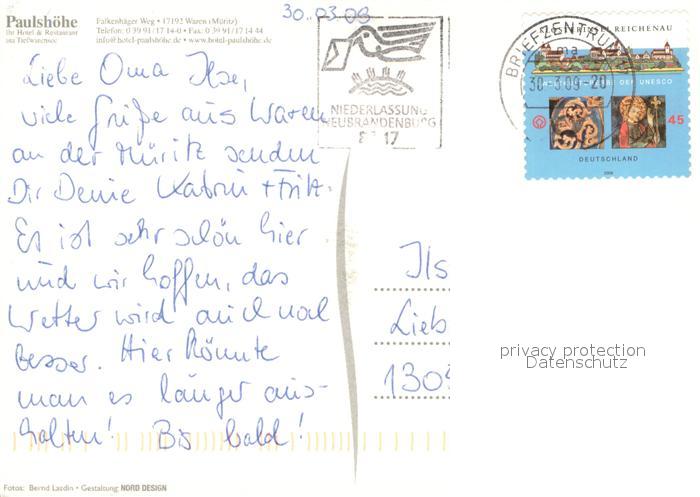 Paulshöhe
Ihr Hotel & Restaurant
am Tiefwarensee
Falkenhäger Weg • 17192 Waren (Müritz)
Telefon: 0 39 91/17 14-0 • Fax: 0 39 91/17 14 44
info@hotel-paulshöhe.de • www.hotel-paulshöhe.de
30.03.09
Liebe Oma Ilse,
viele Grüße aus Waren
an der Müritz senden
Dir Deine Katrin + Fritz.
Es ist sehr schön hier
und wir hoffen, das
Wetter wird auch noch
besser. Hier könnte
man es länger aus-
halten! Bis bald!
NIEDERLASSUNG
NEUBRANDENBURG
17
BRIEFZENTRUM
ma
09-20
REICHENAU
DER UNESCO
45
DEUTSCHLAND
2008
Ils
Lieb
1309
privacy protection
Datenschutz
Fotos: Bernd Lasdin • Gestaltung: NORD DESIGN